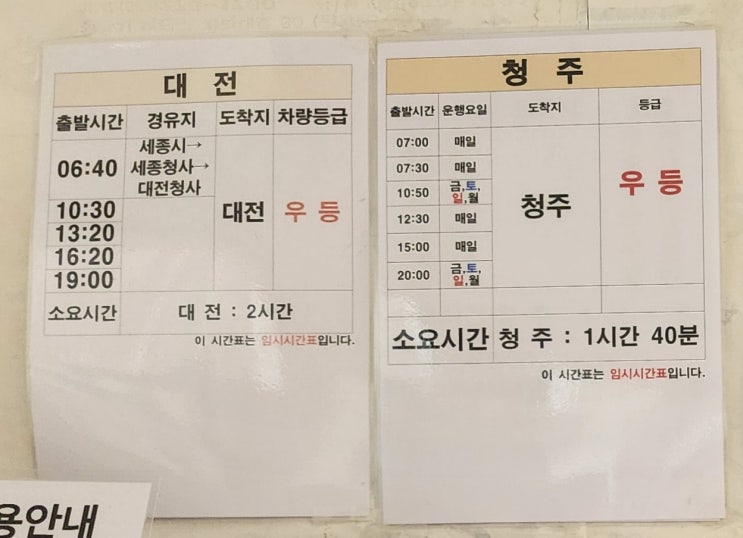 대 전
출발시간 경유지 도착지 차량등급
06:40 세종시→
세종청사→
대전청사
10:30
13:20
16:20
19:00
대전 우 등
소요시간 대 전 : 2시간
이 시간표는 임시시간표입니다.
청 주
출발시간 운행요일 도착지 등급
07:00 매일
07:30 매일
10:50 금,토,
일,월
12:30 매일
15:00 매일
20:00 금,토,
일,월
청주 우 등
소요시간 청 주 : 1시간 40분
이 시간표는 임시시간표입니다.
용안내